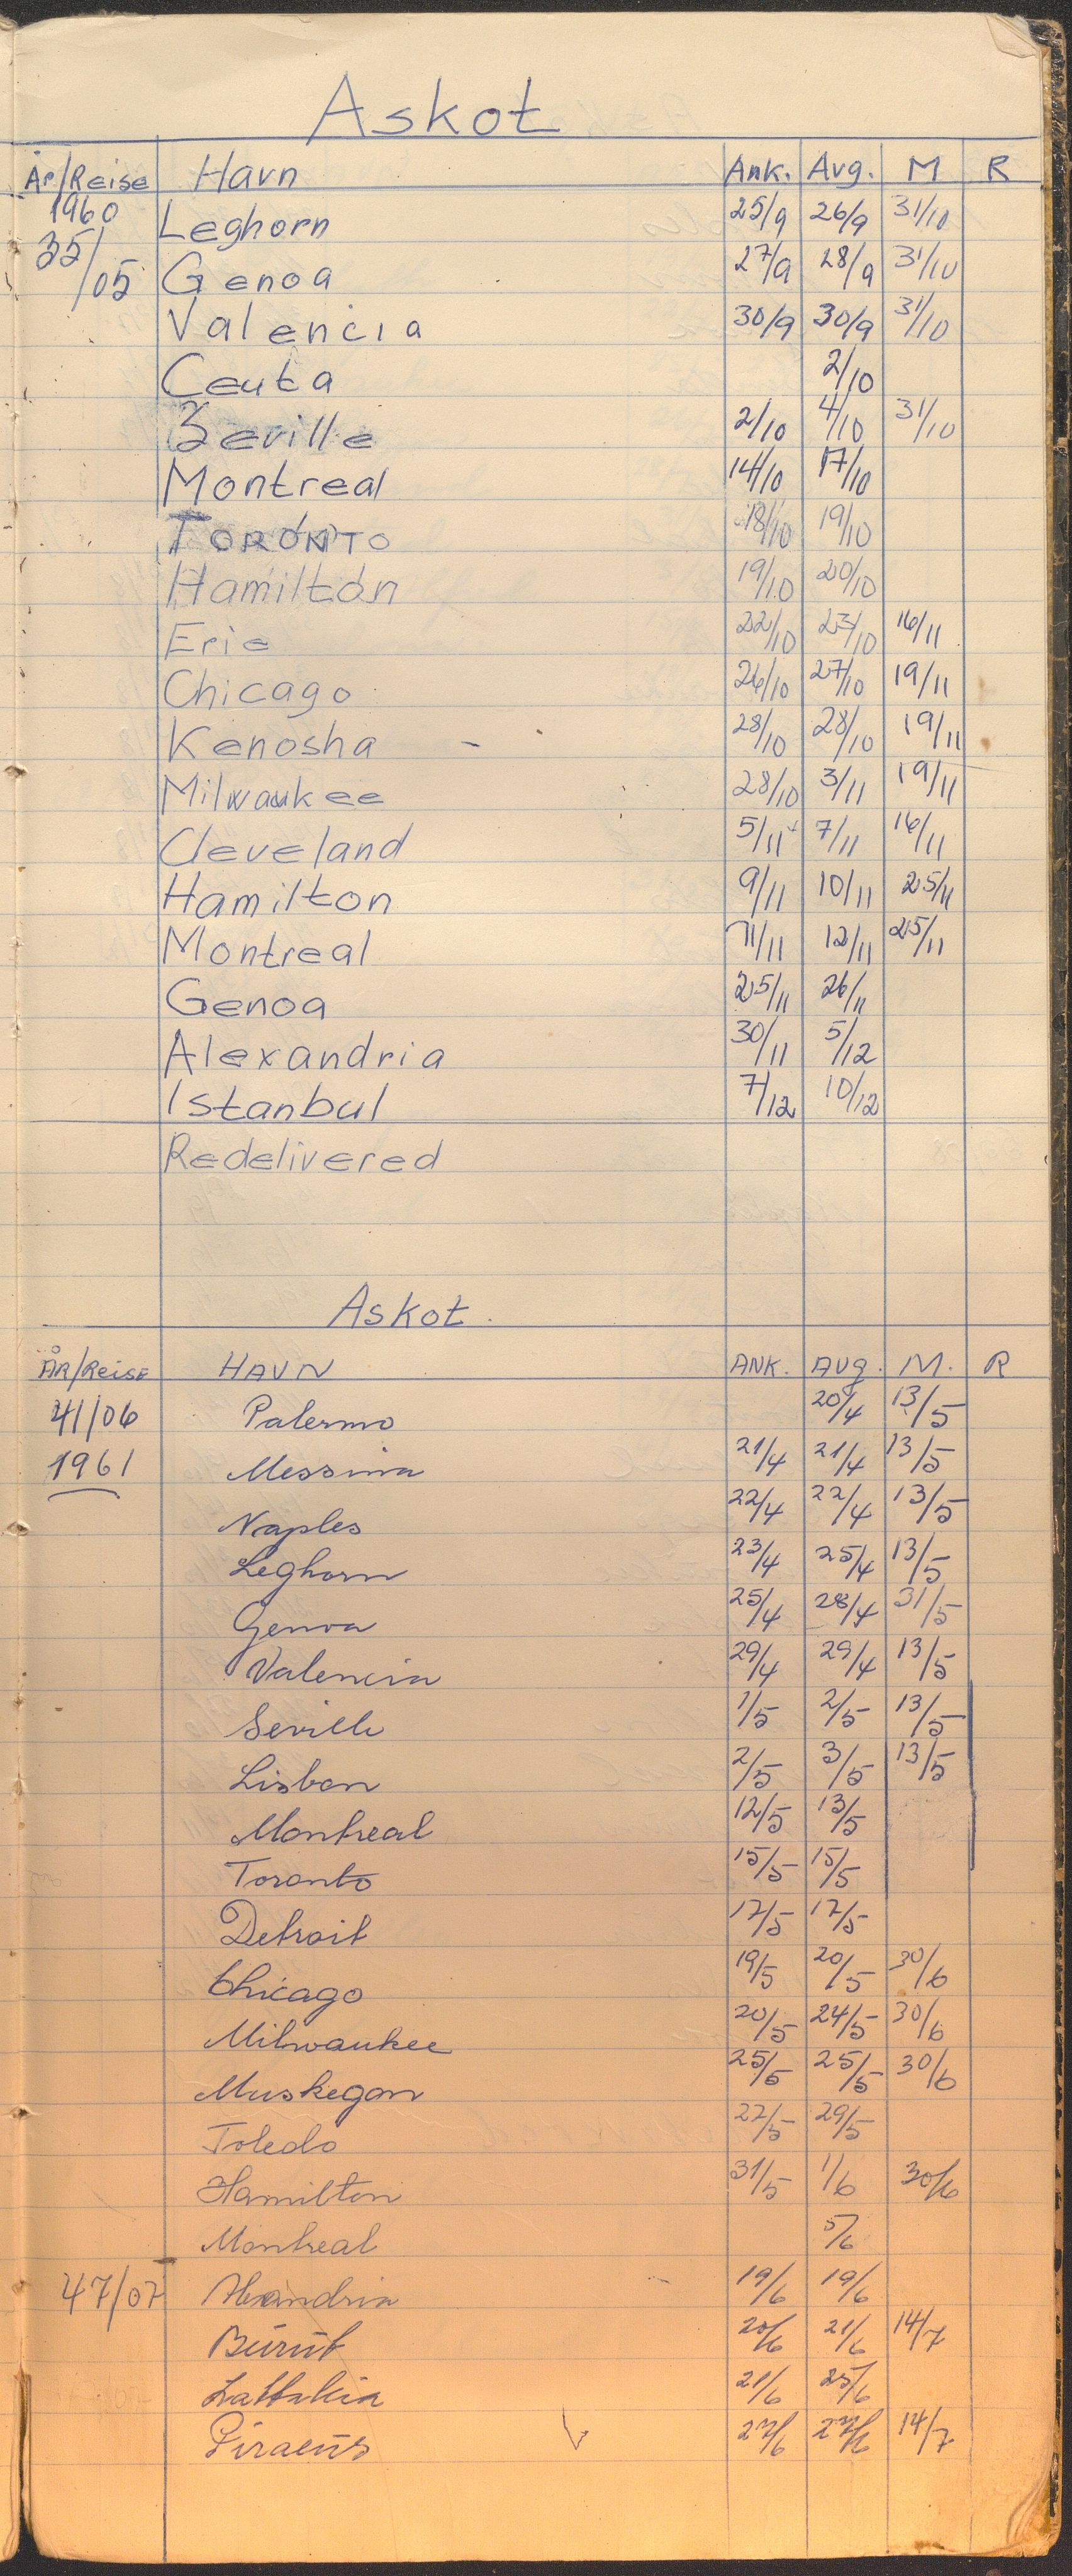 Askot
År/Reise Havn Ank. Avg. M R
1960 Leghorn 25/9 26/9 31/10
35/05 Genoa 27/9 28/9 31/10
Valencia 30/9 30/9 31/10
Ceuta 2/10
Seville 2/10 4/10 31/10
Montreal 14/10 17/10
TORONTO 18/10 19/10
Hamilton 19/10 20/10
Erie 22/10 23/10 16/11
Chicago 26/10 27/10 19/11
Kenosha 28/10 28/10 19/11
Milwaukee 28/10 3/11 19/11
Cleveland 5/11 7/11 16/11
Hamilton 9/11 10/11 25/11
Montreal 11/11 12/11 25/11
Genoa 25/11 26/11
Alexandria 30/11 5/12
Istanbul 7/12 10/12
Redelivered
Askot.
ÅR/Reise HAVN ANK. AVG. M. R
41/06 Palermo 20/4 13/5
1961 Messina 21/4 21/4 13/5
Naples 22/4 22/4 13/5
Leghorn 23/4 25/4 13/5
Genoa 25/4 28/4 31/5
Valencia 29/4 29/4 13/5
Seville 1/5 2/5 13/5
Lisbon 2/5 3/5 13/5
Montreal 12/5 13/5
Toronto 15/5 15/5
Detroit 17/5 17/5
Chicago 19/5 20/5 30/6
Milwaukee 20/5 24/5 30/6
Muskegon 25/5 25/5 30/6
Toledo 27/5 29/5
Hamilton 31/5 1/6 30/6
Montreal 5/6
47/07 Alexandria 19/6 19/6
Beirut 20/6 21/6 14/7
Lattakia 21/6 25/6
Piraeus 27/6 27/6 14/7